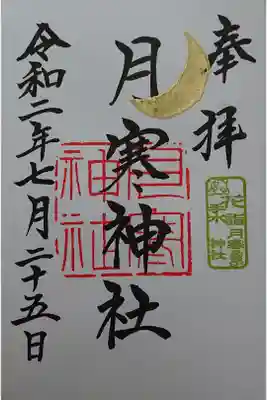 奉拝
月寒神社
令和二年七月二十五日
月寒
神社